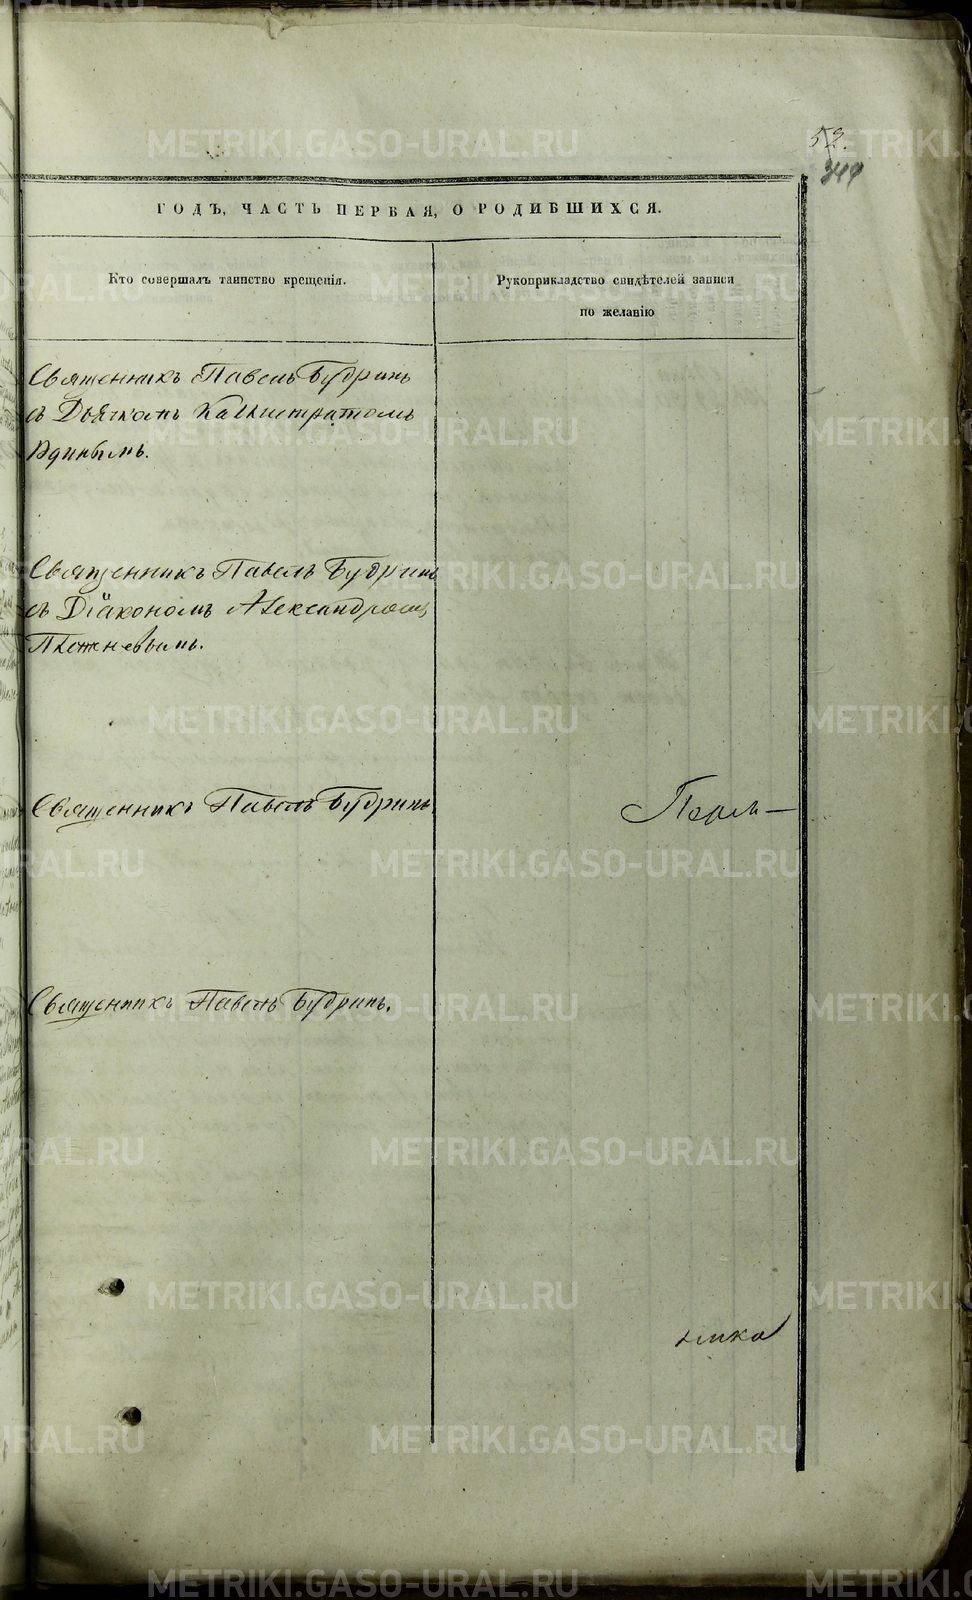 53.
344
ГОДЪ, ЧАСТЬ ПЕРВАЯ, О РОДИВШИХСЯ.
Кто совершалъ таинство крещенія.
Рукоприкладство свидѣтелей записи
по желанію
Священникъ Павелъ Будринъ
съ Дьячкомъ Каллистратомъ
Священникъ Павелъ Будринъ
съ Діакономъ Александромъ
Плотневымъ.
Священникъ Павелъ Будринъ.
Священникъ Павелъ Будринъ.
METRIKI.GASO-URAL.RU